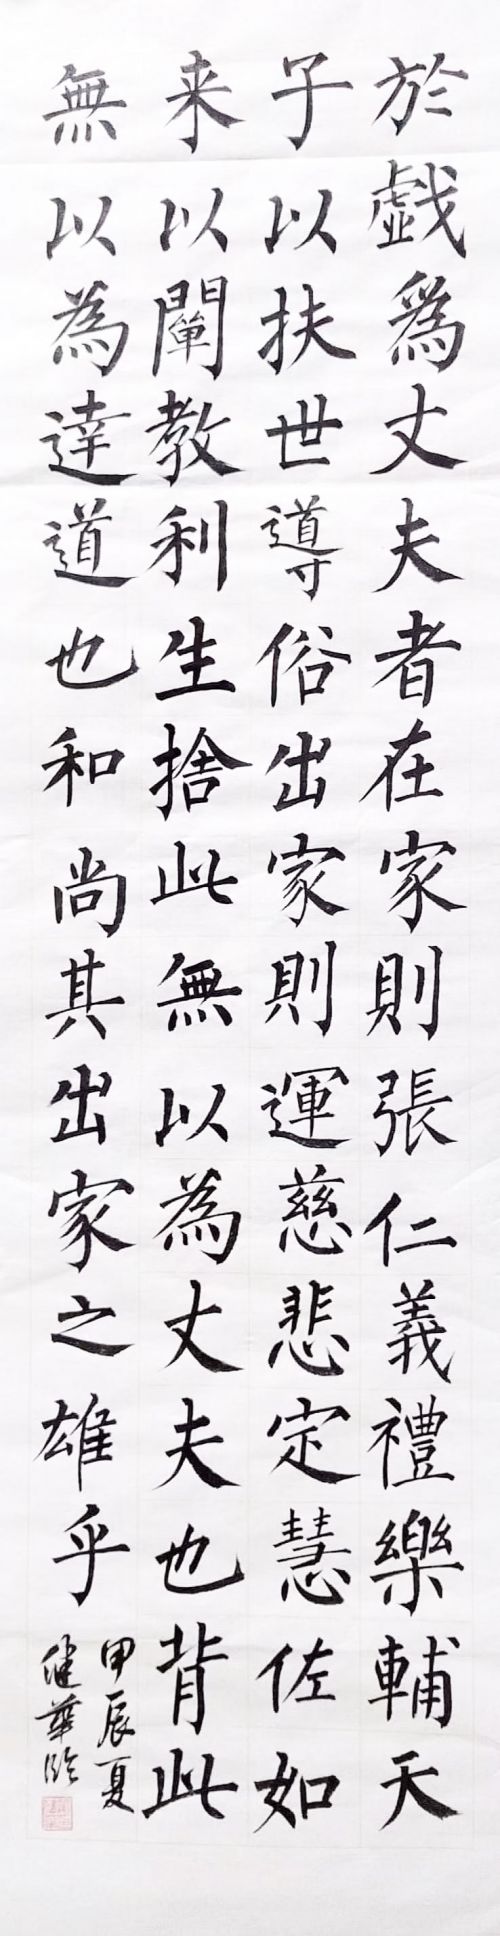 於戲爲丈夫者在家則張仁義禮樂輔天
子以扶世導俗出家則運慈悲定慧佐如
来以闡教利生捨此無以為丈夫也背此
無以為達道也和尚其出家之雄乎
甲辰夏
健華臨